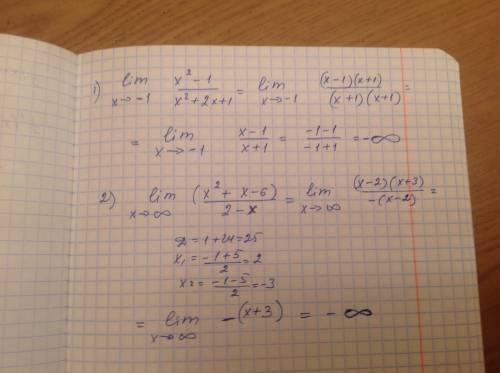 1) lim x→-1 (x² - 1)/(x² + 2x + 1) = lim x→-1 ((x-1)(x+1))/((x+1)(x+1)) =
= lim x→-1 (x-1)/(x+1) = (-1-1)/(-1+1) = -∞
2) lim x→∞ ((x² + x - 6)/(2 - x)) = lim x→∞ ((x-2)(x+3))/(-(x-2)) =
D = 1 + 24 = 25
x₁ = (-1+5)/2 = 2
x₂ = (-1-5)/2 = -3
= lim x→∞ -(x+3) = -∞